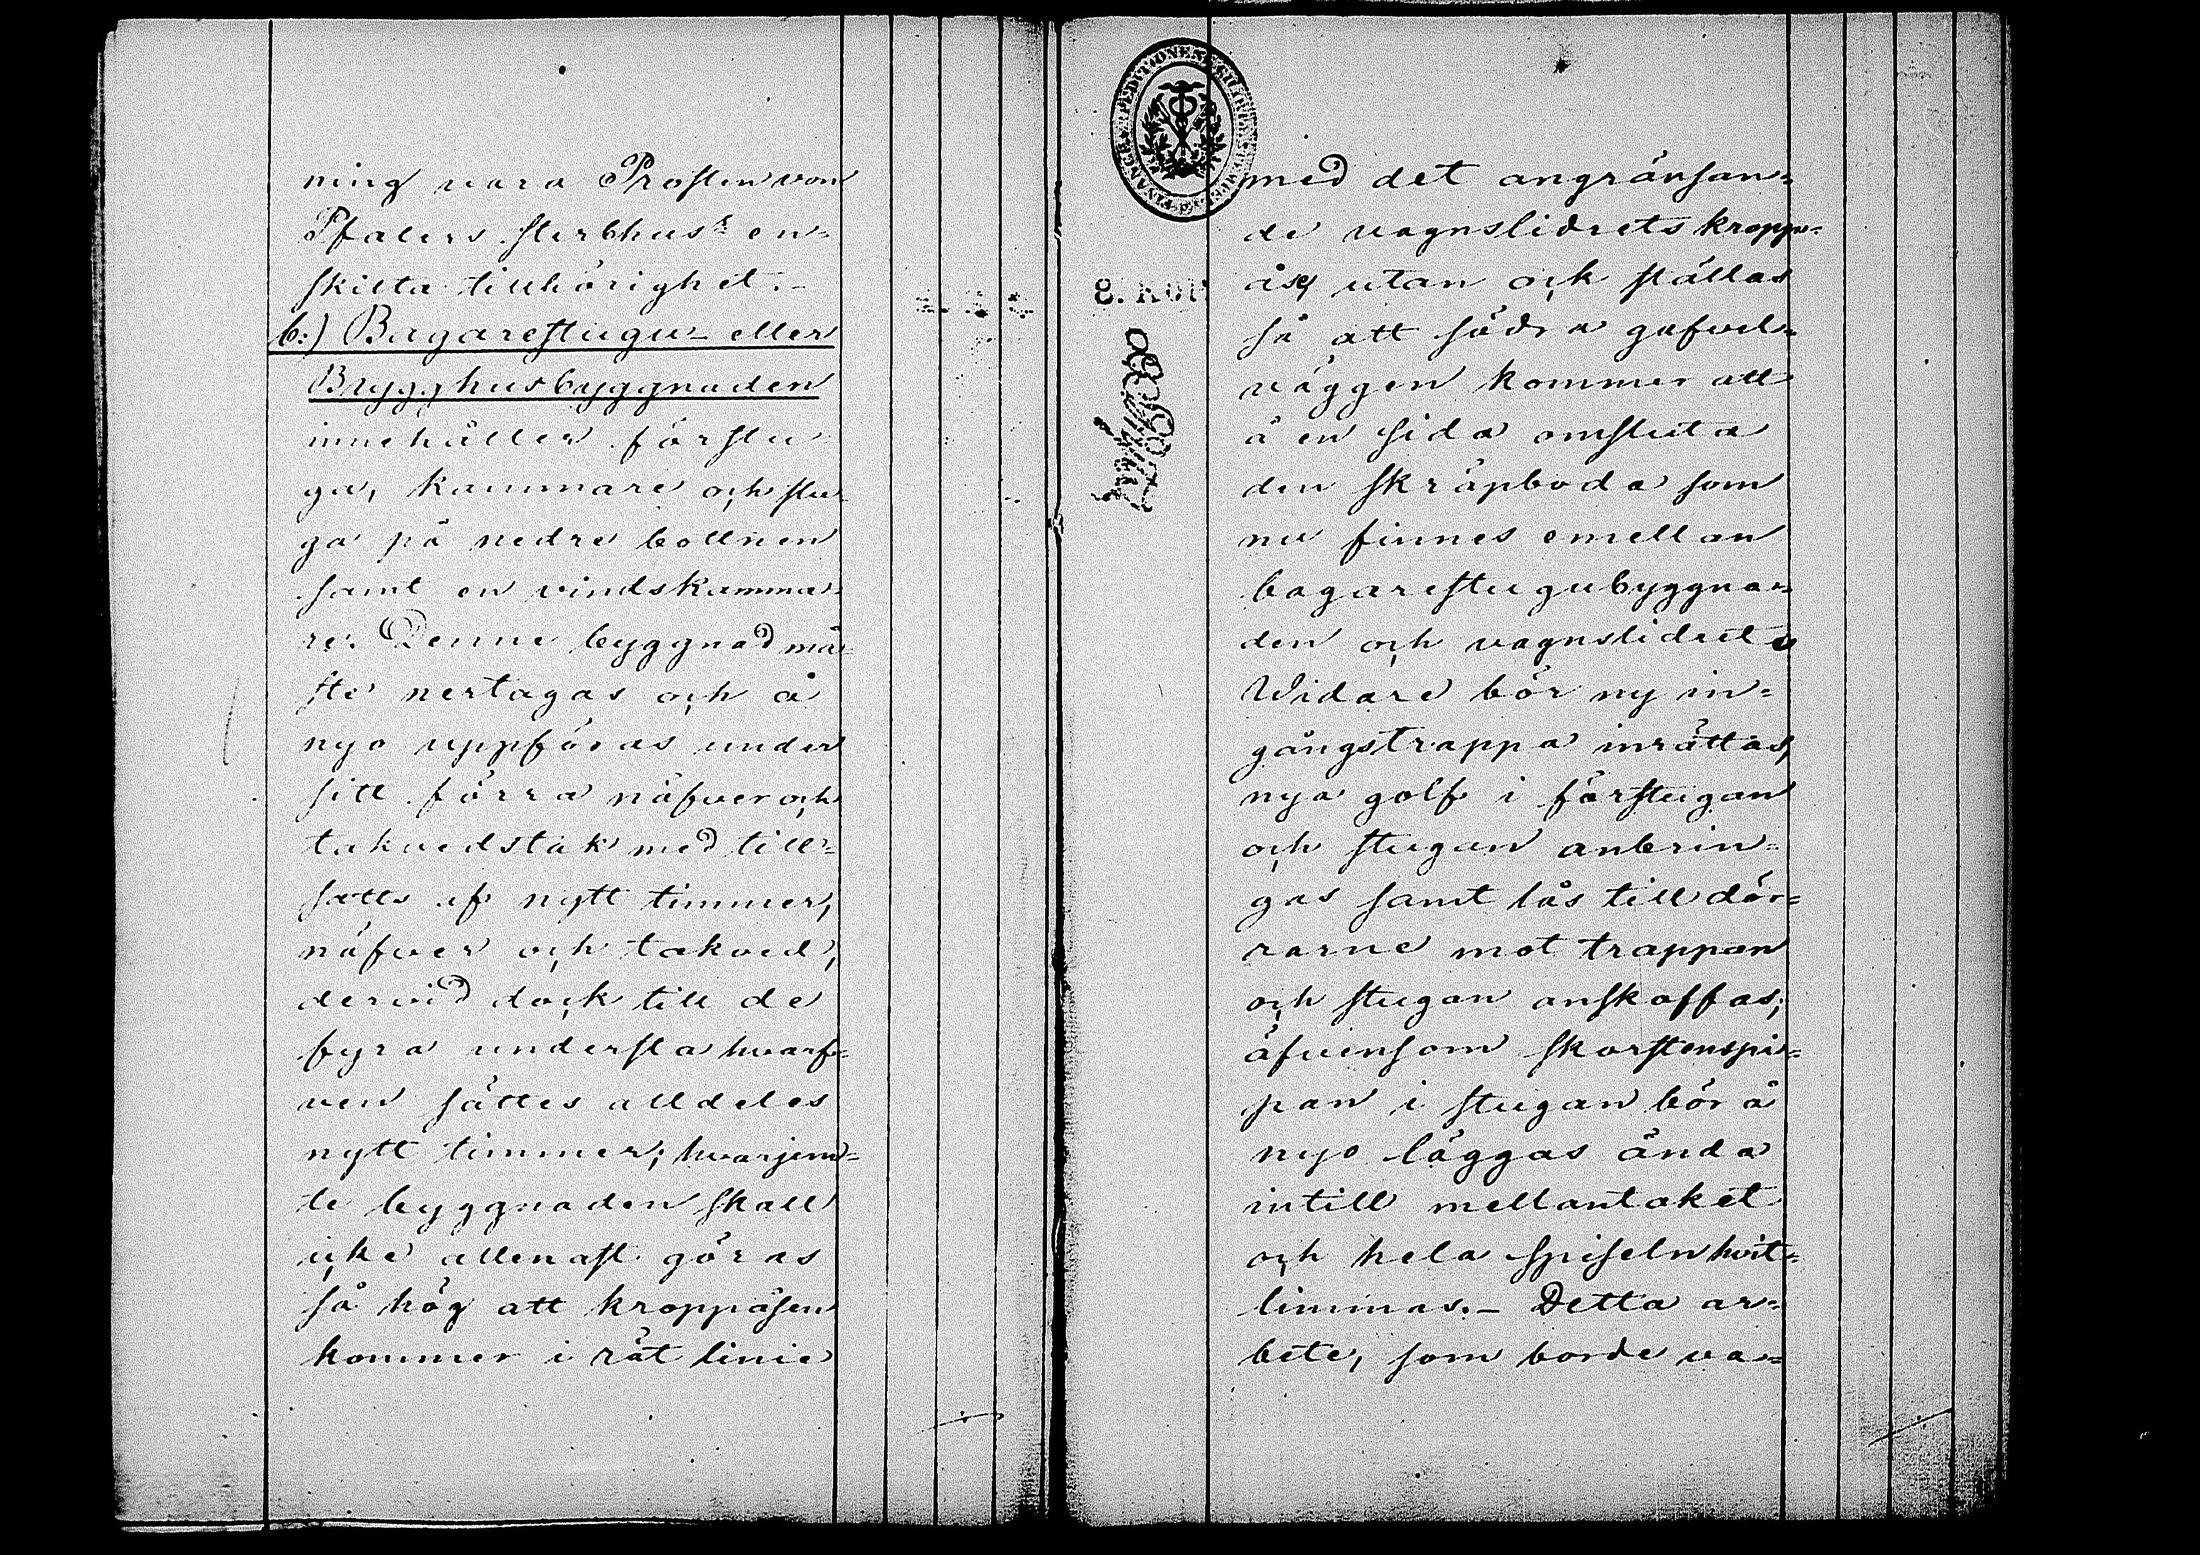 ning vara Prosten von
Pfalers sterbhus's en-
skilta tillhörighet.-
b:) Bagarestugu- eller
Brygghusbyggnaden
innehåller förstu
ga, kammare och stu-
ga på nedre bottnen
samt en vindskamma-
re. Denne byggnad må-
ste nertagas och å
nyo uppföras under
sitt förra näfver och
takvedstak med till-
satts af nytt timmer,
näfver och takved,
dervid dock till de
fyra understa hvarf-
ven sättes alldeles
nytt timmer; hvarjem-
te byggnaden skall
icke allenast göras
så hög att kroppåsen
kommer i rät linie
8. KOP.
med det angränsan-
de vagnslidrets kropp-
ås, utan ock ställas
så att södra gafvel-
väggen kommer att
å en sida omsluta
den skräpboda som
nu finnes emellan
bagarestugubyggna-
den och vagnslidret.
Widare bör ny in-
gångstrappa inrättas,
nya golf i förstugan
och stugan anbrin-
gas samt lås till dör-
rarne mot trappan
och stugan anskaffas;
äfvensom skorstenspi-
pan i stugan bör å
nyo läggas ända
intill mellantaket
och hela spiseln hvit-
limmas.- Detta ar-
bete, som borde va-